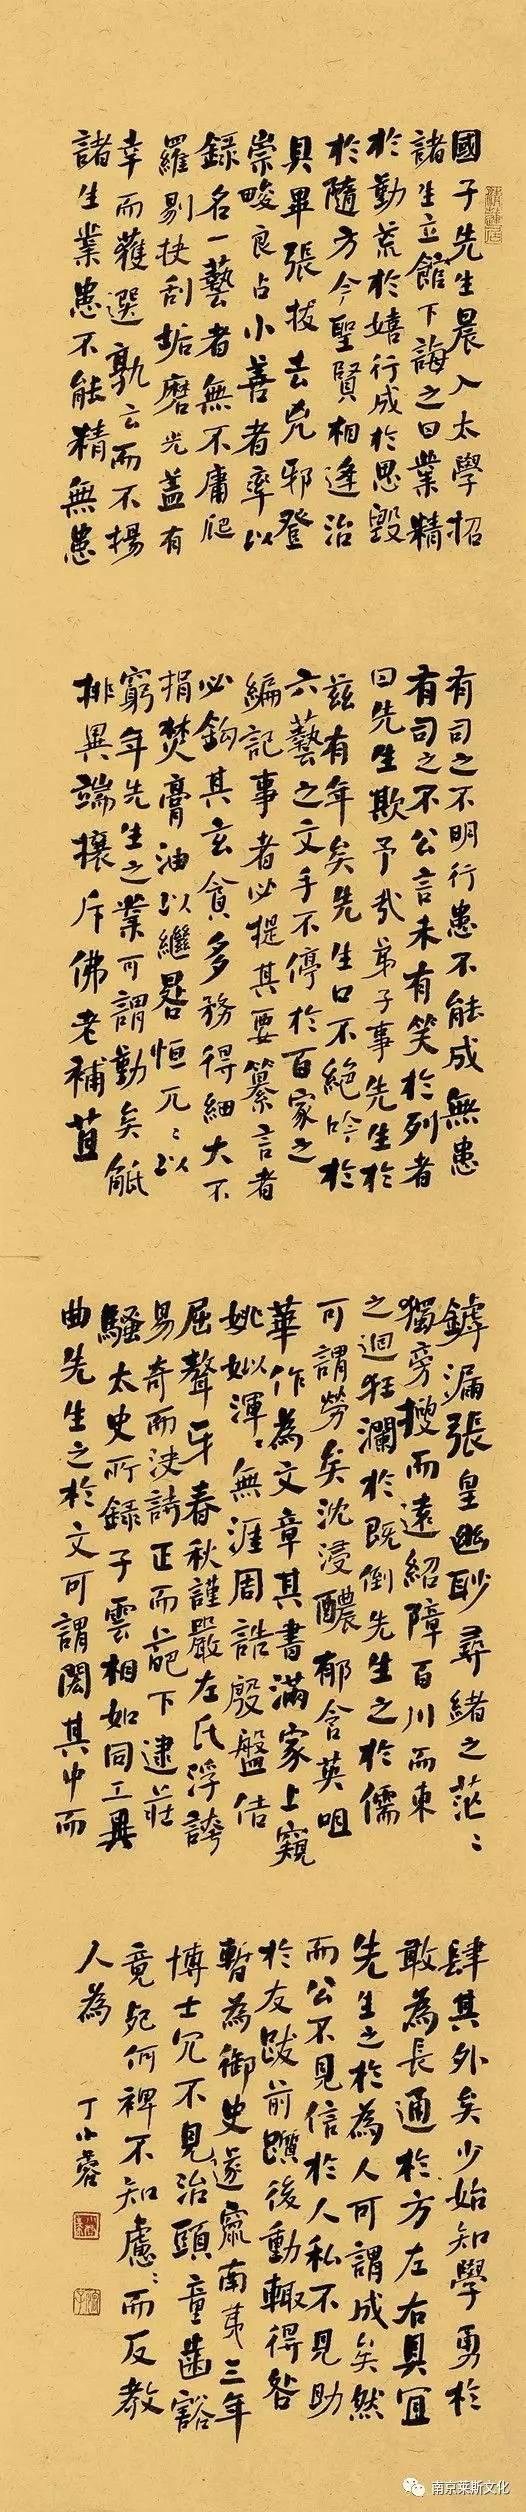 國子先生晨入太學招
諸生立館下誨之曰業精
於勤荒於嬉行成於思毀
於隨方今聖賢相逢治
具畢張拔去兇邪登
崇畯良占小善者率以
錄名一藝者無不庸爬
羅剔抉刮垢磨光蓋有
幸而獲選孰云而不揚
諸生業患不能精無患
有司之不明行患不能成無患
有司之不公言未有笑於列者
曰先生欺予哉弟子事先生於
茲有年矣先生口不絕吟於
六藝之文手不停於百家之
編記事者必提其要纂言者
必鉤其玄貪多務得細大不
捐焚膏油以繼晷恒兀〻以
窮年先生之業可謂勤矣觝
排異端攘斥佛老補苴
罅漏張皇幽眇尋緒之茫〻
獨旁搜而遠紹障百川而東
之迴狂瀾於既倒先生之於儒
可謂勞矣沈浸醲郁含英咀
華作為文章其書滿家上窺
姚姒渾〻無涯周誥殷盤佶
屈聱牙春秋謹嚴左氏浮誇
易奇而法詩正而葩下逮莊
騷太史所錄子雲相如同工異
曲先生之於文可謂閎其中而
肆其外矣少始知學勇於
敢為長通於方左右具宜
先生之於為人可謂成矣然
而公不見信於人私不見助
於友跋前躓後動輒得咎
暫為御史遂竄南夷三年
博士冗不見治頭童齒豁
竟死何裨不知慮〻而反教
人為 丁小蓉
南京莱斯文化